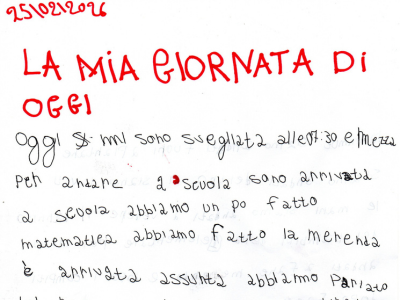 25/02/2026
LA MIA GIORNATA DI
OGGI
Oggi mi sono svegliata alle 07:30 e mezza
per andare a scuola sono arrivata
a scuola abbiamo un po fatto
matematica abbiamo fatto la merenda
è arrivata assunta abbiamo parlato